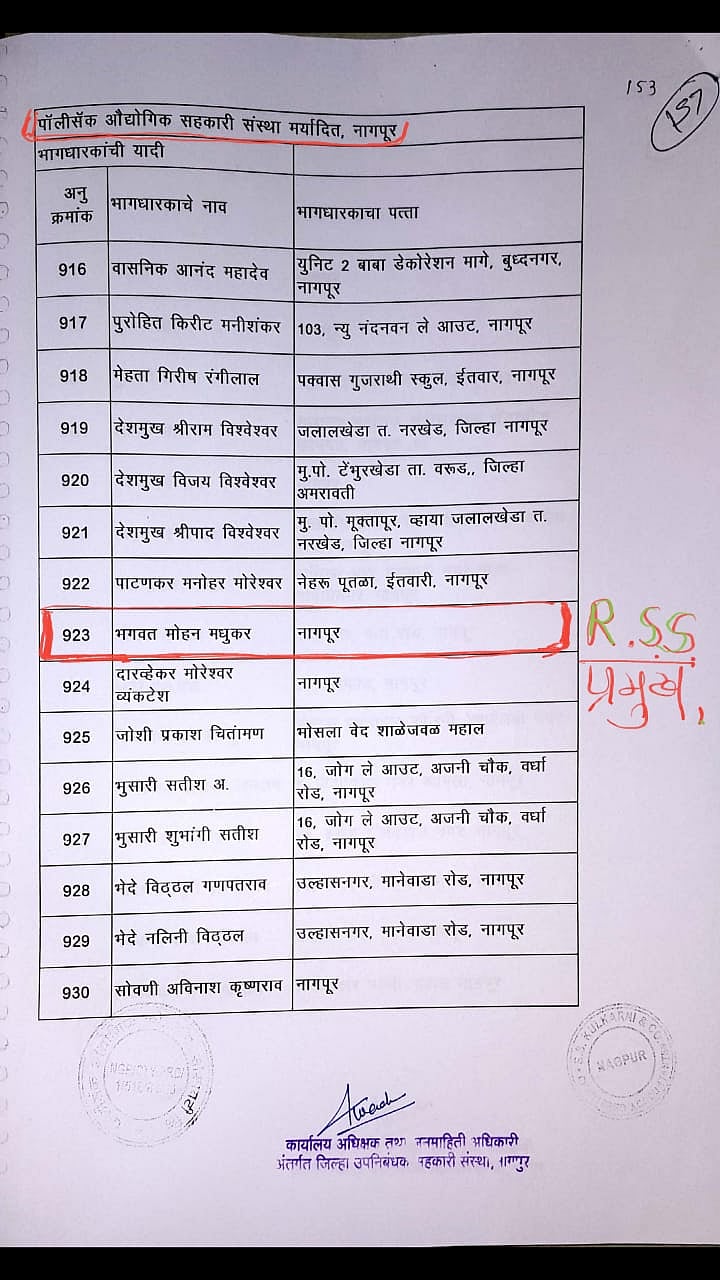 153
137
पॉलीसॅक औद्योगिक सहकारी संस्था मर्यादित, नागपूर
भागधारकांची यादी
अनु क्रमांक भागधारकाचे नाव भागधारकाचा पत्ता
916 वासनिक आनंद महादेव युनिट 2 बाबा डेकोरेशन मागे, बुध्दनगर, नागपूर
917 पुरोहित किरीट मनीशंकर 103, न्यु नंदनवन ले आउट, नागपूर
918 मेहता गिरीष रंगीलाल पक्वास गुजराथी स्कुल, ईतवार, नागपूर
919 देशमुख श्रीराम विश्वेश्वर जलालखेडा त. नरखेड, जिल्हा नागपूर
920 देशमुख विजय विश्वेश्वर मु.पो. टेंभुरखेडा ता. वरूड,, जिल्हा अमरावती
921 देशमुख श्रीपाद विश्वेश्वर मु. पो. मूक्तापूर, व्हाया जलालखेडा त. नरखेड, जिल्हा नागपूर
922 पाटणकर मनोहर मोरेश्वर नेहरू पूतळा, ईतवारी, नागपूर
923 भगवत मोहन मधुकर नागपूर
R.S.S.
प्रमुख,
924 दारव्हेकर मोरेश्वर व्यंकटेश नागपूर
925 जोशी प्रकाश चिंतामण भोसला वेद शाळेजवळ महाल
926 भुसारी सतीश अ. 16, जोग ले आउट, अजनी चौक, वर्धा रोड, नागपूर
927 भुसारी शुभांगी सतीश 16, जोग ले आउट, अजनी चौक, वर्धा रोड, नागपूर
928 भेदे विठ्ठल गणपतराव उल्हासनगर, मानेवाडा रोड, नागपूर
929 भेदे नलिनी विठ्ठल उल्हासनगर, मानेवाडा रोड, नागपूर
930 सोवणी अविनाश कृष्णराव नागपूर
NAGPUR
कार्यालय अधिक्षक तथा जनमाहिती अधिकारी
अंतर्गत जिल्हा उपनिबंधक सहकारी संस्था, नागपुर